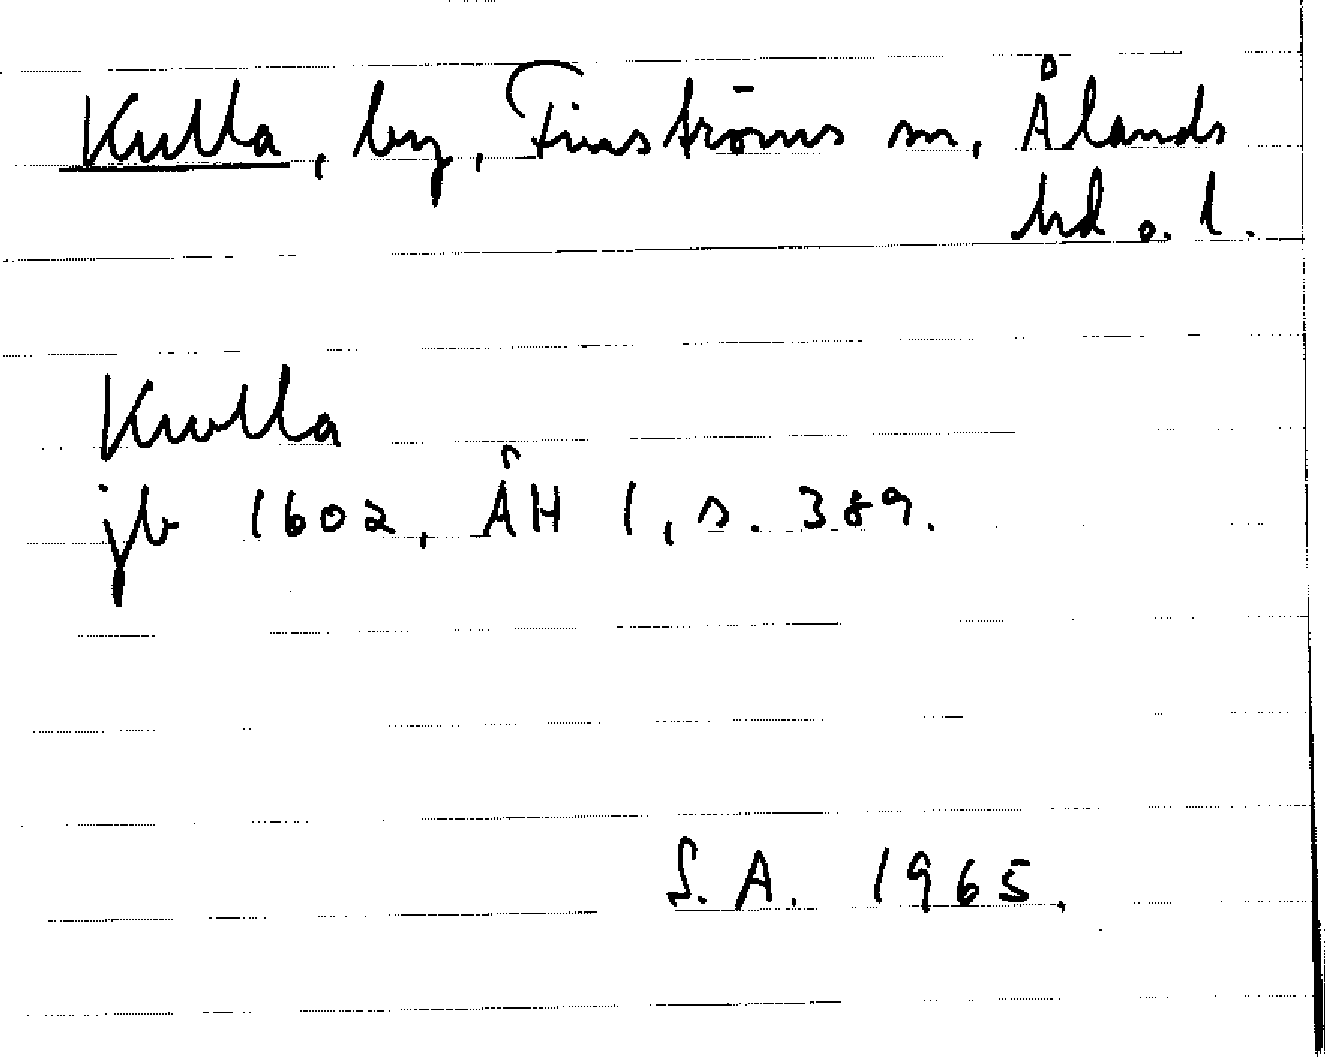 Kulla, by, Finströms sn, Ålands
hd o. l.
Kwlla
jb 1602, ÅH 1, s. 389.
S. A. 1965.